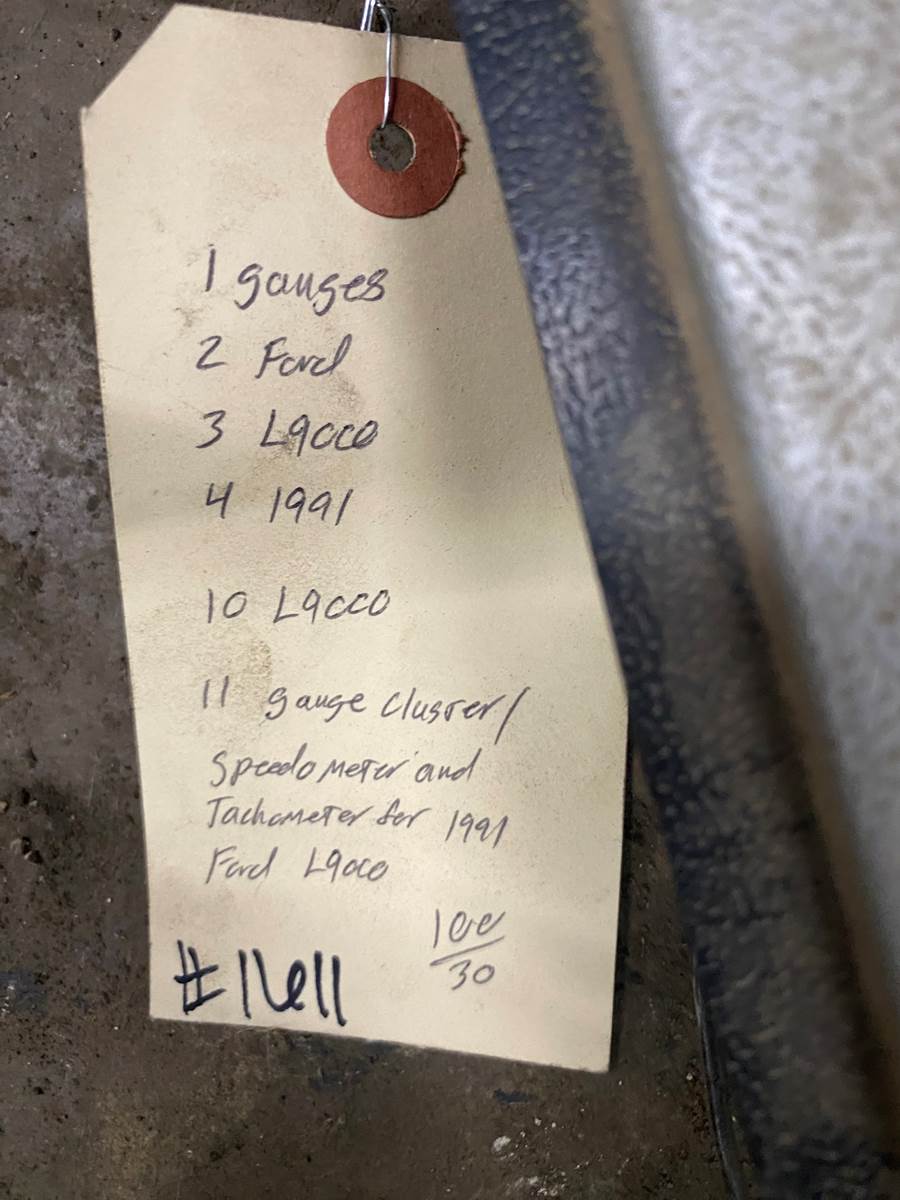 1 gauges
2 Ford
3 L9000
4 1991
10 L9000
11 gauge cluster/
Speedometer and
Tachometer for 1991
Ford L9000
100
30
#1611